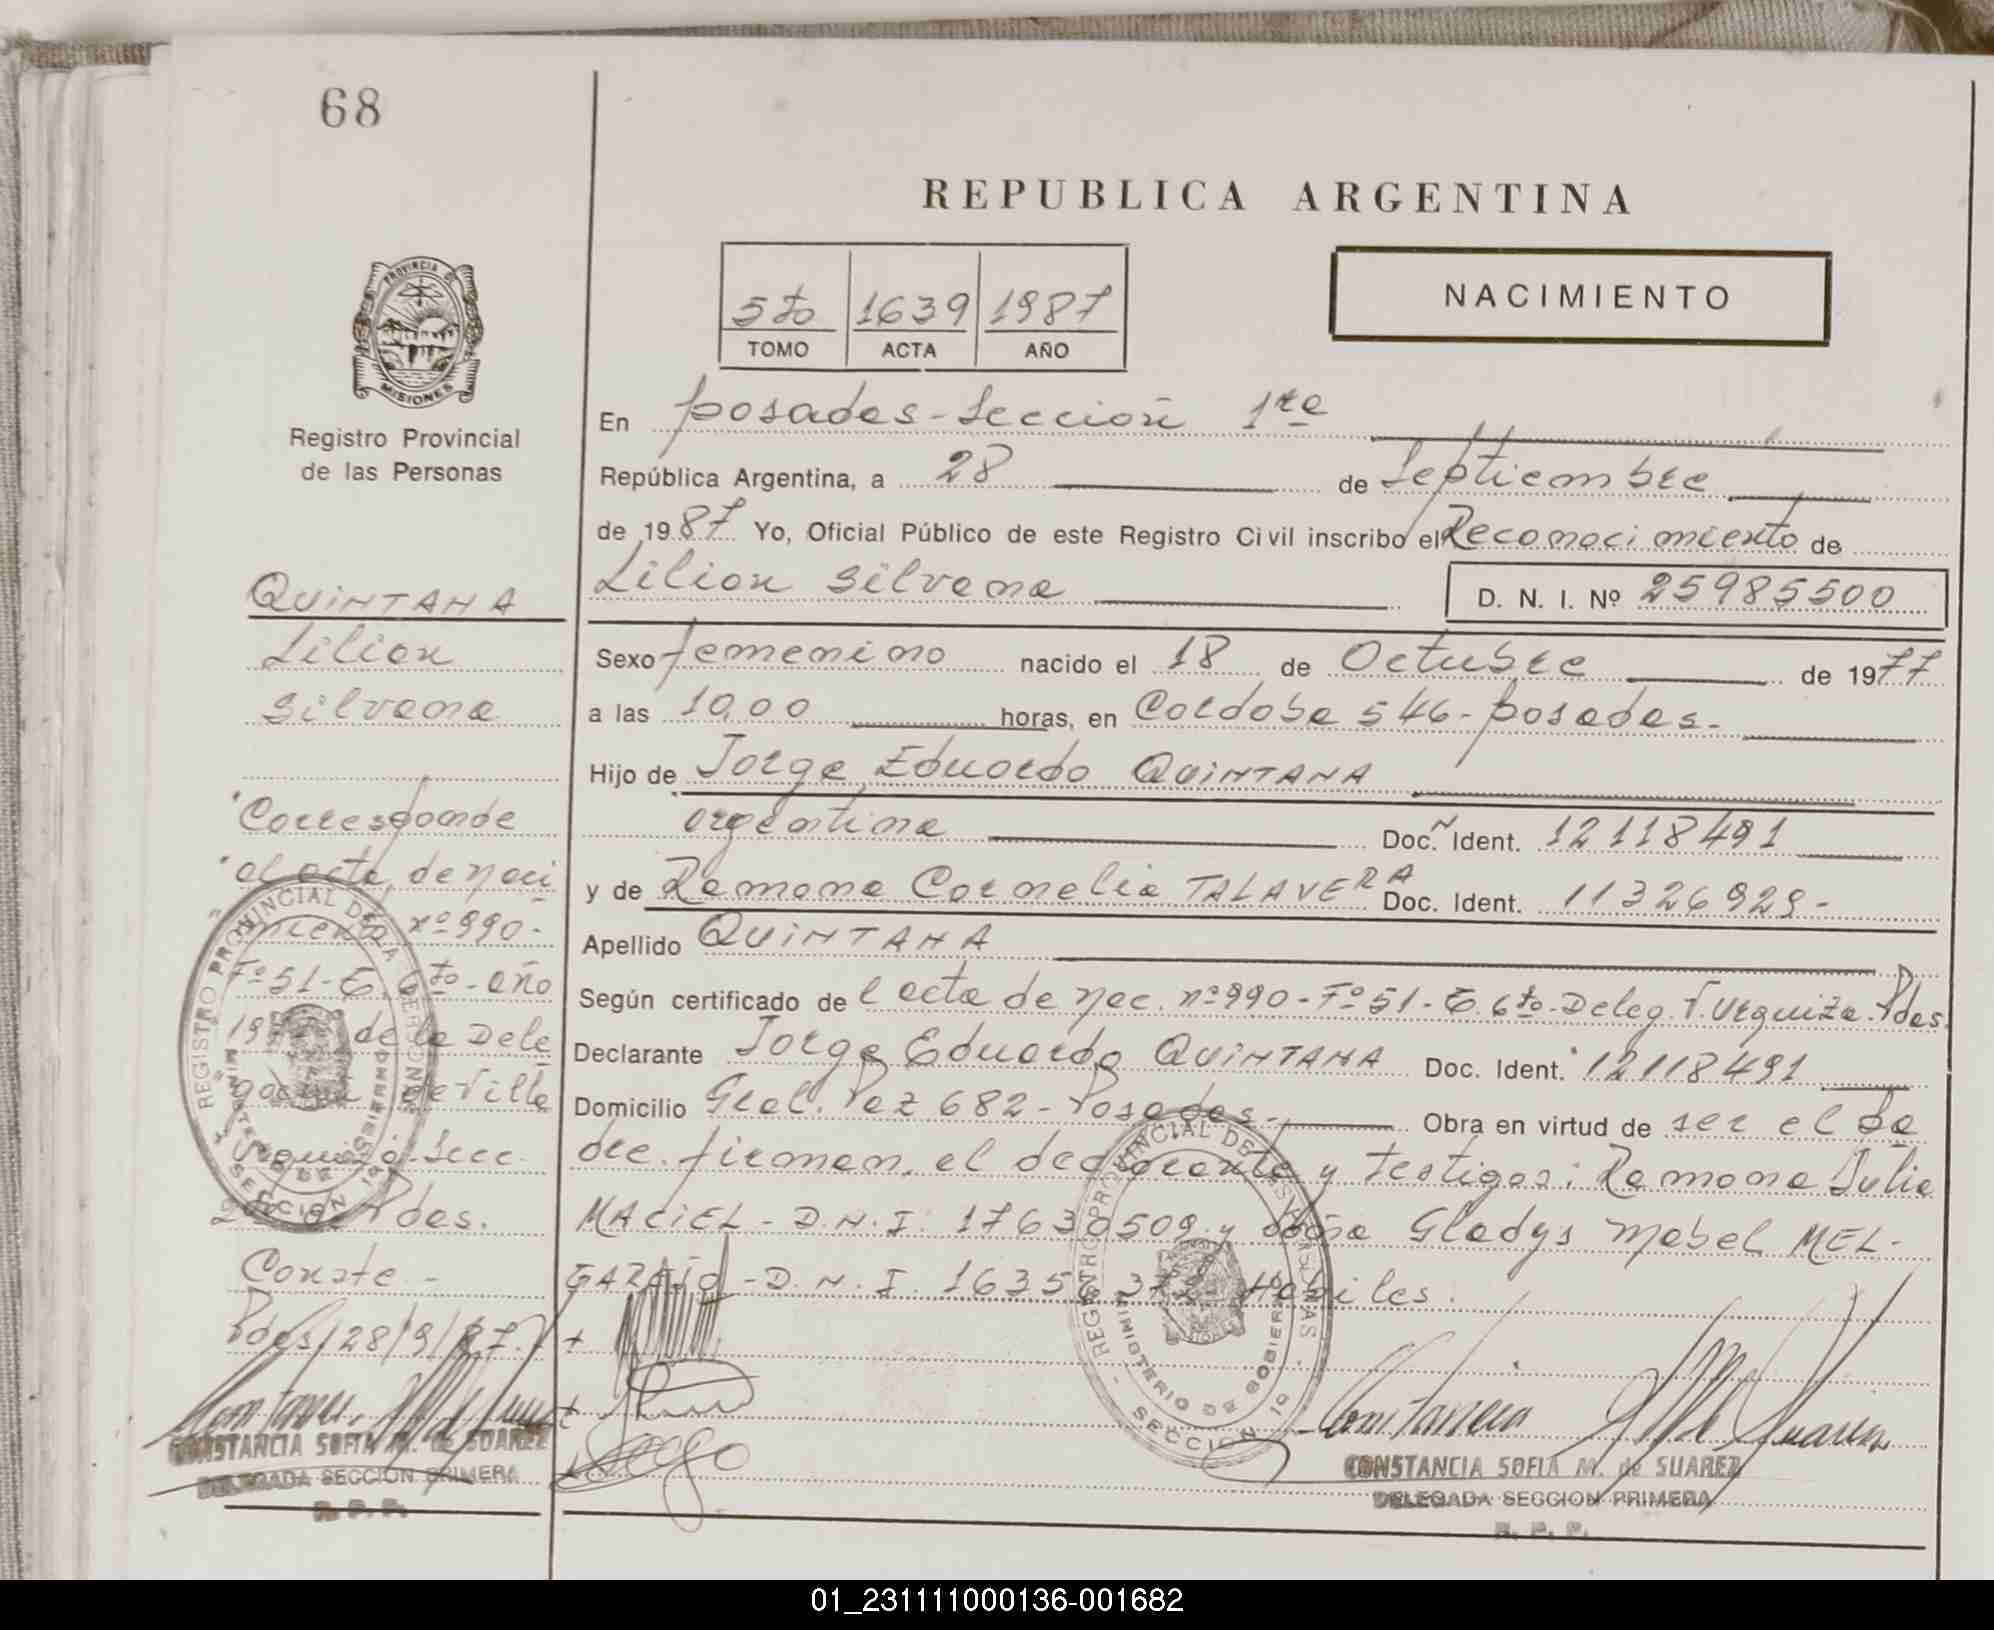 68
REPUBLICA ARGENTINA
5to 1639 1987
TOMO ACTA AÑO
NACIMIENTO
PROVINCIA DE
MISIONES
Registro Provincial
de las Personas
QUINTANA
Lilian
Silvana
Corresponde
al acta de naci
miento nº 990-
Fº 51-T. 6to-año
19 de la Dele
gación de Villa
Urquiza-Secc.
2da de Pdas.
Conste-
Pdas/28/9/87.
CONSTANCIA SOFIA M. de SUAREZ
DELEGADA SECCION PRIMERA
R. P. P.
En Posadas-Sección 1ra
República Argentina, a 28 de Septiembre
de 1987 Yo, Oficial Público de este Registro Civil inscribo el Reconocimiento de
Lilian Silvana D. N. I. Nº 25985500
Sexo femenino nacido el 18 de Octubre de 1977
a las 10,00 horas, en Cordoba 546-Posadas-
Hijo de Jorge Eduardo QUINTANA
argentina Doc. Ident. 12118491
y de Ramona Cornelia TALAVERA Doc. Ident. 11326929-
Apellido QUINTANA
Según certificado de l acta de nac. nº 990-Fº 51-T. 6to-Deleg. V. Urquiza-Pdas.
Declarante Jorge Eduardo QUINTANA Doc. Ident. 12118491
Domicilio Gral. Paz 682-Posadas- Obra en virtud de ser el Pa
dre. firman, el declarante y testigos: Ramona Julia
MACIEL-D.N.I. 17630509 y doña Gladys Mabel MEL-
GAREJO-D.N.I. 1635 372 Habiles.
REGISTRO PROVINCIAL DE LAS PERSONAS
MINISTERIO DE GOBIERNO
SECCION 1a
CONSTANCIA SOFIA M. de SUAREZ
DELEGADA SECCION PRIMERA
R. P. P.
01_231111000136-001682